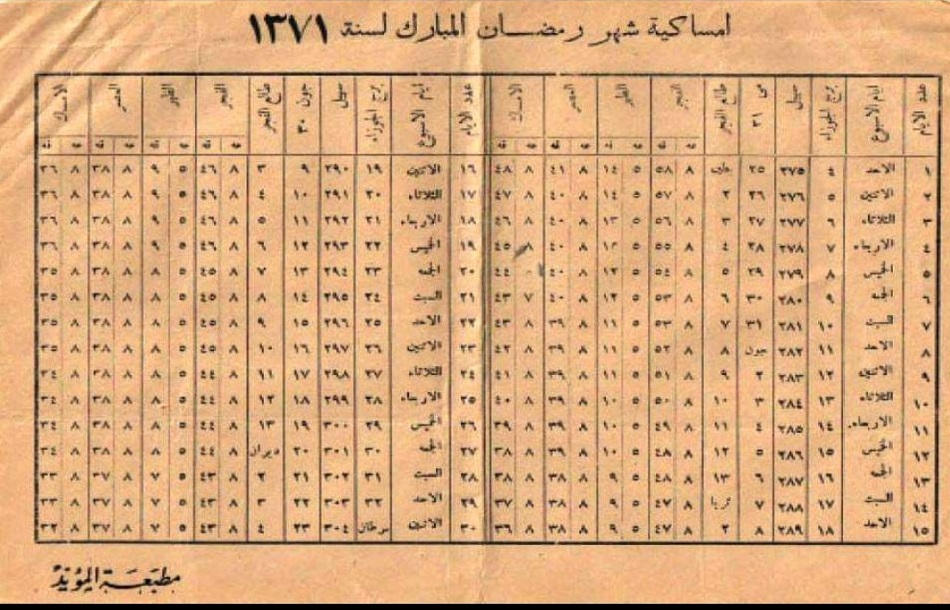 امساكية شهر رمضان المبارك لسنة ١٣٧١
عدد الايام ايام الاسبوع برج الجوزاء سهيل مي ٣١ طالع الفجر الفجر الظهر العصر الامساك عدد الايام ايام الاسبوع برج الجوزاء سهيل جون ٣٠ طالع الفجر الفجر الظهر العصر الامساك
١ الاحد ٤ ٢٧٥ ٢٥ ٨ ٥٨ ٥ ١٤ ٨ ٤١ ٨ ٤٨ ١٦ الاثنين ١٩ ٢٩٠ ٩ ٣ ٨ ٤٦ ٥ ٩ ٨ ٣٨ ٨ ٣٦
٢ الاثنين ٥ ٢٧٦ ٢٦ ٢ ٨ ٥٧ ٥ ١٤ ٨ ٤٠ ٨ ٤٧ ١٧ الثلاثاء ٢٠ ٢٩١ ١٠ ٤ ٨ ٤٦ ٥ ٩ ٨ ٣٨ ٨ ٣٦
٣ الثلاثاء ٦ ٢٧٧ ٢٧ ٣ ٨ ٥٦ ٥ ١٣ ٨ ٤٠ ٨ ٤٦ ١٨ الاربعاء ٢١ ٢٩٢ ١١ ٥ ٨ ٤٦ ٥ ٩ ٨ ٣٨ ٨ ٣٦
٤ الاربعاء ٧ ٢٧٨ ٢٨ ٤ ٨ ٥٥ ٥ ١٣ ٨ ٤٠ ٨ ٤٥ ١٩ الخميس ٢٢ ٢٩٣ ١٢ ٦ ٨ ٤٦ ٥ ٩ ٨ ٣٨ ٨ ٣٦
٥ الخميس ٨ ٢٧٩ ٢٩ ٥ ٨ ٥٤ ٥ ١٢ ٨ ٤٠ ٤٤ ٢٠ الجمعة ٢٣ ٢٩٤ ١٣ ٧ ٨ ٤٥ ٥ ٨ ٨ ٣٨ ٨ ٣٥
٦ الجمعة ٩ ٢٨٠ ٣٠ ٦ ٨ ٥٣ ٥ ١٢ ٨ ٤٠ ٧ ٤٣ ٢١ السبت ٢٤ ٢٩٥ ١٤ ٨ ٨ ٤٥ ٥ ٨ ٨ ٣٨ ٨ ٣٥
٧ السبت ١٠ ٢٨١ ٣١ ٧ ٨ ٥٣ ٥ ١١ ٨ ٣٩ ٨ ٤٣ ٢٢ الاحد ٢٥ ٢٩٦ ١٥ ٩ ٨ ٤٥ ٥ ٨ ٨ ٣٨ ٨ ٣٥
٨ الاحد ١١ ٢٨٢ جون ٨ ٨ ٥٢ ٥ ١١ ٨ ٣٩ ٨ ٤٢ ٢٣ الاثنين ٢٦ ٢٩٧ ١٦ ١٠ ٨ ٤٥ ٥ ٨ ٨ ٣٨ ٨ ٣٥
٩ الاثنين ١٢ ٢٨٣ ٢ ٩ ٨ ٥١ ٥ ١١ ٨ ٣٩ ٨ ٤١ ٢٤ الثلاثاء ٢٧ ٢٩٨ ١٧ ١١ ٨ ٤٤ ٥ ٨ ٨ ٣٨ ٨ ٣٤
١٠ الثلاثاء ١٣ ٢٨٤ ٣ ١٠ ٨ ٥٠ ٥ ١٠ ٨ ٣٩ ٨ ٤٠ ٢٥ الاربعاء ٢٨ ٢٩٩ ١٨ ١٢ ٨ ٤٤ ٥ ٨ ٨ ٣٨ ٨ ٣٤
١١ الاربعاء ١٤ ٢٨٥ ٤ ١١ ٨ ٤٩ ٥ ١٠ ٨ ٣٩ ٨ ٣٩ ٢٦ الخميس ٢٩ ٣٠٠ ١٩ ١٣ ٨ ٤٤ ٥ ٨ ٨ ٣٨ ٨ ٣٤
١٢ الخميس ١٥ ٢٨٦ ٥ ١٢ ٨ ٤٨ ٥ ١٠ ٨ ٣٩ ٨ ٣٨ ٢٧ الجمعة ٣٠ ٣٠١ ٢٠ دبران ٨ ٤٤ ٥ ٨ ٨ ٣٨ ٨ ٣٤
١٣ الجمعة ١٦ ٢٨٧ ٦ ١٣ ٨ ٤٨ ٥ ٩ ٨ ٣٨ ٨ ٣٨ ٢٨ السبت ٣١ ٣٠٢ ٢١ ٢ ٨ ٤٣ ٥ ٧ ٨ ٣٨ ٨ ٣٣
١٤ السبت ١٧ ٢٨٨ ٧ ثريا ٨ ٤٧ ٥ ٩ ٨ ٣٨ ٨ ٣٧ ٢٩ الاحد ٣٢ ٣٠٣ ٢٢ ٣ ٨ ٤٣ ٥ ٧ ٨ ٣٧ ٨ ٣٣
١٥ الاحد ١٨ ٢٨٩ ٨ ٢ ٨ ٤٧ ٥ ٩ ٨ ٣٨ ٨ ٣٦ ٣٠ الاثنين سرطان ٣٠٤ ٢٣ ٤ ٨ ٤٣ ٥ ٧ ٨ ٣٧ ٨ ٣٢
مطبعة المؤيد